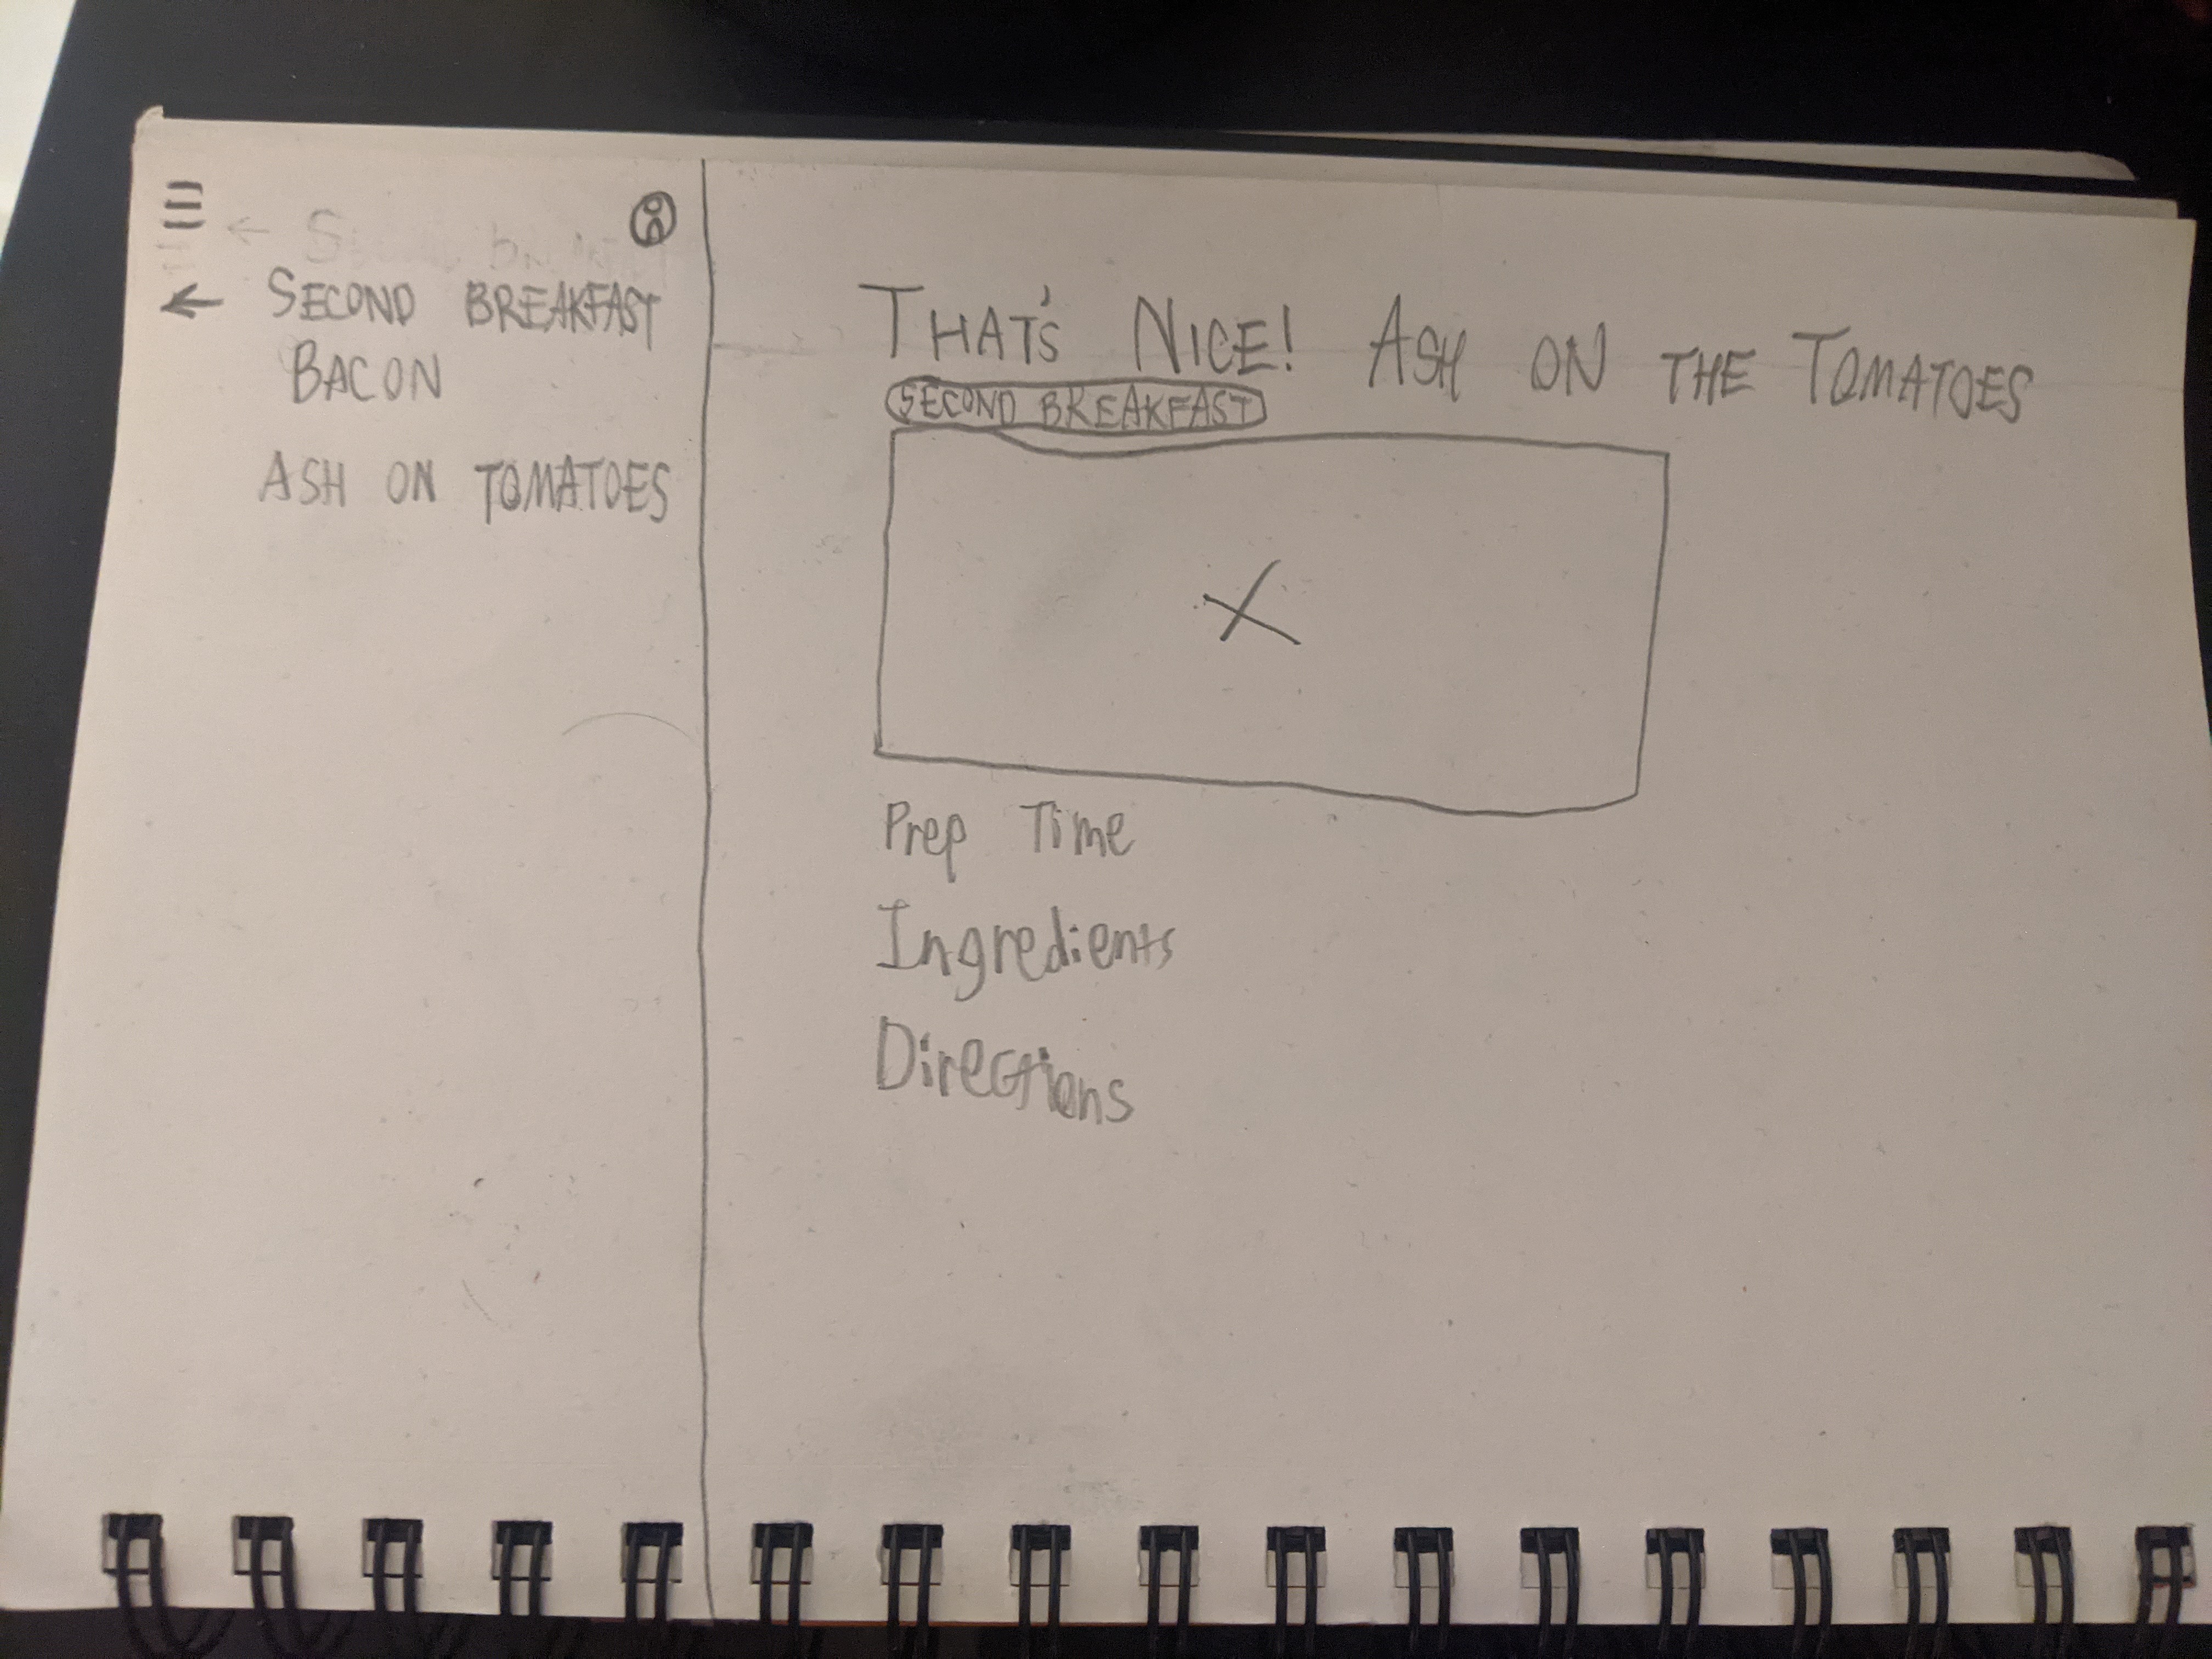 ← SECOND BREAKFAST
BACON
ASH ON TOMATOES
THAT'S NICE! ASH ON THE TOMATOES
SECOND BREAKFAST
Prep Time
Ingredients
Directions